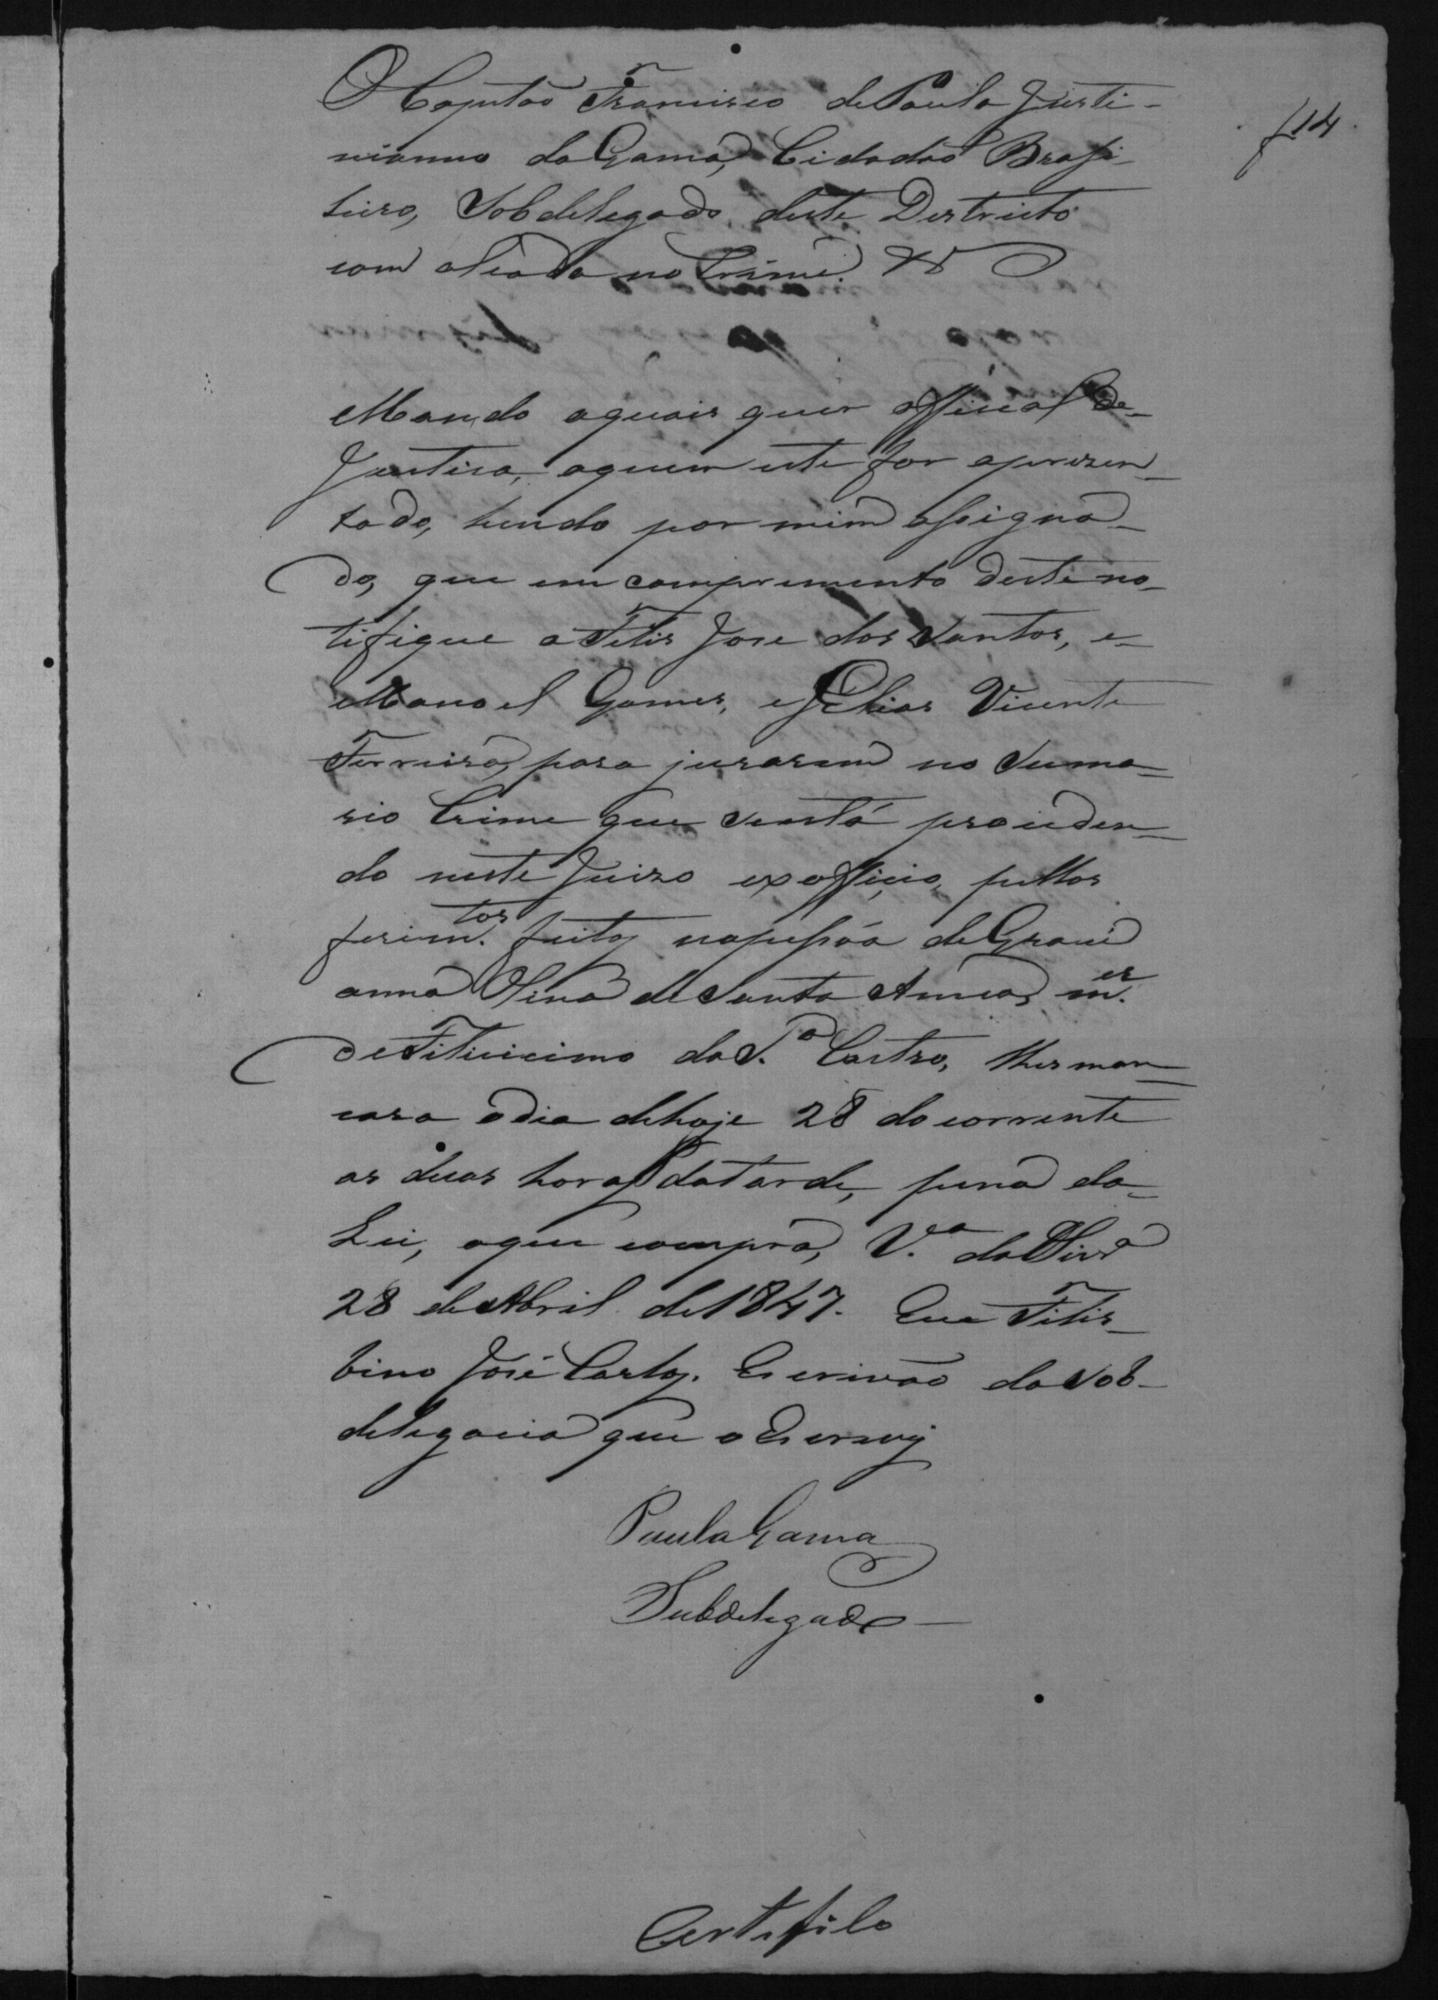 f 14
O Capitão Francisco de Paula Justi-
nianno da Gama, Cidadão Brasi-
leiro, Sobdelegado deste Destricto
com alçada no Crime. &
Mando aquais quer official de
Justica, aquem este for aprezen-
tado, hindo por mim assigna-
do, que em comprimento deste no-
tifique a Felis Jose dos Santos, e-
Manoel Gomes, e Elias Vicente
Ferreira, para jurarem no Suma-
rio Crime que sestá proceden-
do neste Juizo exofficio, pellos
ferim.tos feitos napessôa de Graci
anna Lina de Santa Anna, m.er
de Felicicimo da S.a Castro, lhes mar-
cara odia dehoje 28 do corrente
as duas horas datarde, pena da-
Lei, oque compra, V.a da Oliv.a
28 de Abril de 1847. Eu Felis-
bino José Carlos. Escrivão da Sob-
delegacia que o Escrevy
Paula Gama
Subdelegado
Certifico